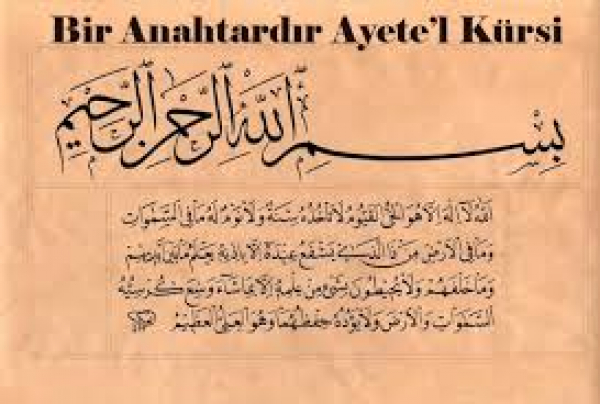 Bir Anahtardır Ayete'l Kürsi
بِسْمِ اللّٰهِ الرَّحْمٰنِ الرَّحِيمِ
اَللّٰهُ لَٓا اِلٰهَ اِلَّا هُوَ الْحَيُّ الْقَيُّومُ لَا تَأْخُذُهُ سِنَةٌ وَلَا نَوْمٌ لَهُ مَا فِي السَّمٰوَاتِ
وَمَا فِي الْاَرْضِ مَنْ ذَا الَّذ۪ي يَشْفَعُ عِنْدَهُ اِلَّا بِاِذْنِهِ يَعْلَمُ مَا بَيْنَ اَيْد۪يهِمْ
وَمَا خَلْفَهُمْ وَلَا يُحِيطُونَ بِشَيْءٍ مِنْ عِلْمِهِ اِلَّا بِمَا شَٓاءَ وَسِعَ كُرْسِيُّهُ
السَّمٰوَاتِ وَالْاَرْضَ وَلَا يَؤُدُهُ حِفْظُهُمَا وَهُوَ الْعَلِيُّ الْعَظِيمُ